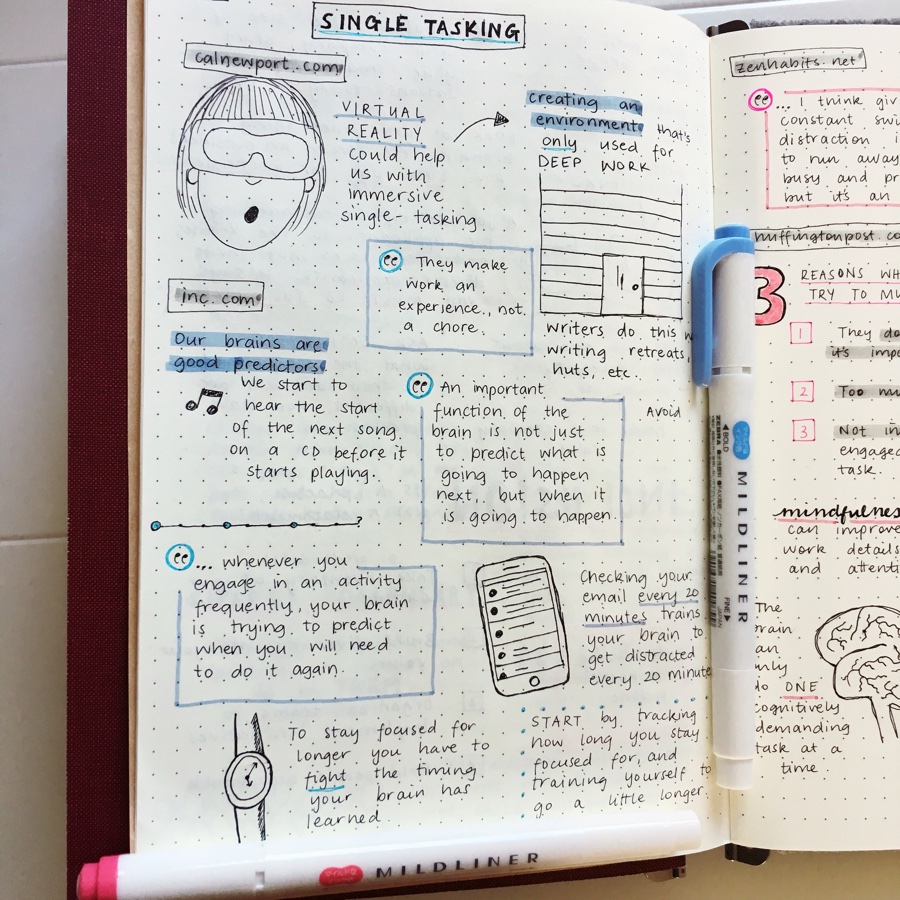 SINGLE TASKING
calnewport.com
VIRTUAL
REALITY
could help
us with
immersive
single-tasking
creating an
environment that's
only used for
DEEP WORK
They make
work an
experience, not
a chore.
writers do this
writing retreats,
huts, etc.
inc.com
Our brains are
good predictors
We start to
hear the start
of the next song
on a CD before it
starts playing.
An important
function of the
brain is not just
to predict what is
going to happen
next, but when it
is going to happen.
Avoid
?
... whenever you
engage in an activity
frequently, your brain
is trying to predict
when you will need
to do it again.
Checking your
email every 20
minutes trains
your brain to
get distracted
every 20 minute
To stay focused for
longer you have to
fight the timing
your brain has
learned
START by tracking
how long you stay
focused for, and
training yourself to
go a little longer.
zenhabits.net
... I think
constant
distraction
to run away
busy and
but it's an
huffingtonpost.co
3 REASONS
TRY TO
1 They
it's
2 Too
3 Not
engaged
task.
mindfulnes
can improve
work details
and
The
brain
can
only
do ONE
cognitively
demanding
task at a
time.
ZEBRA
BOLD
MILDLINER
FINE
JAPAN
MILDLINER